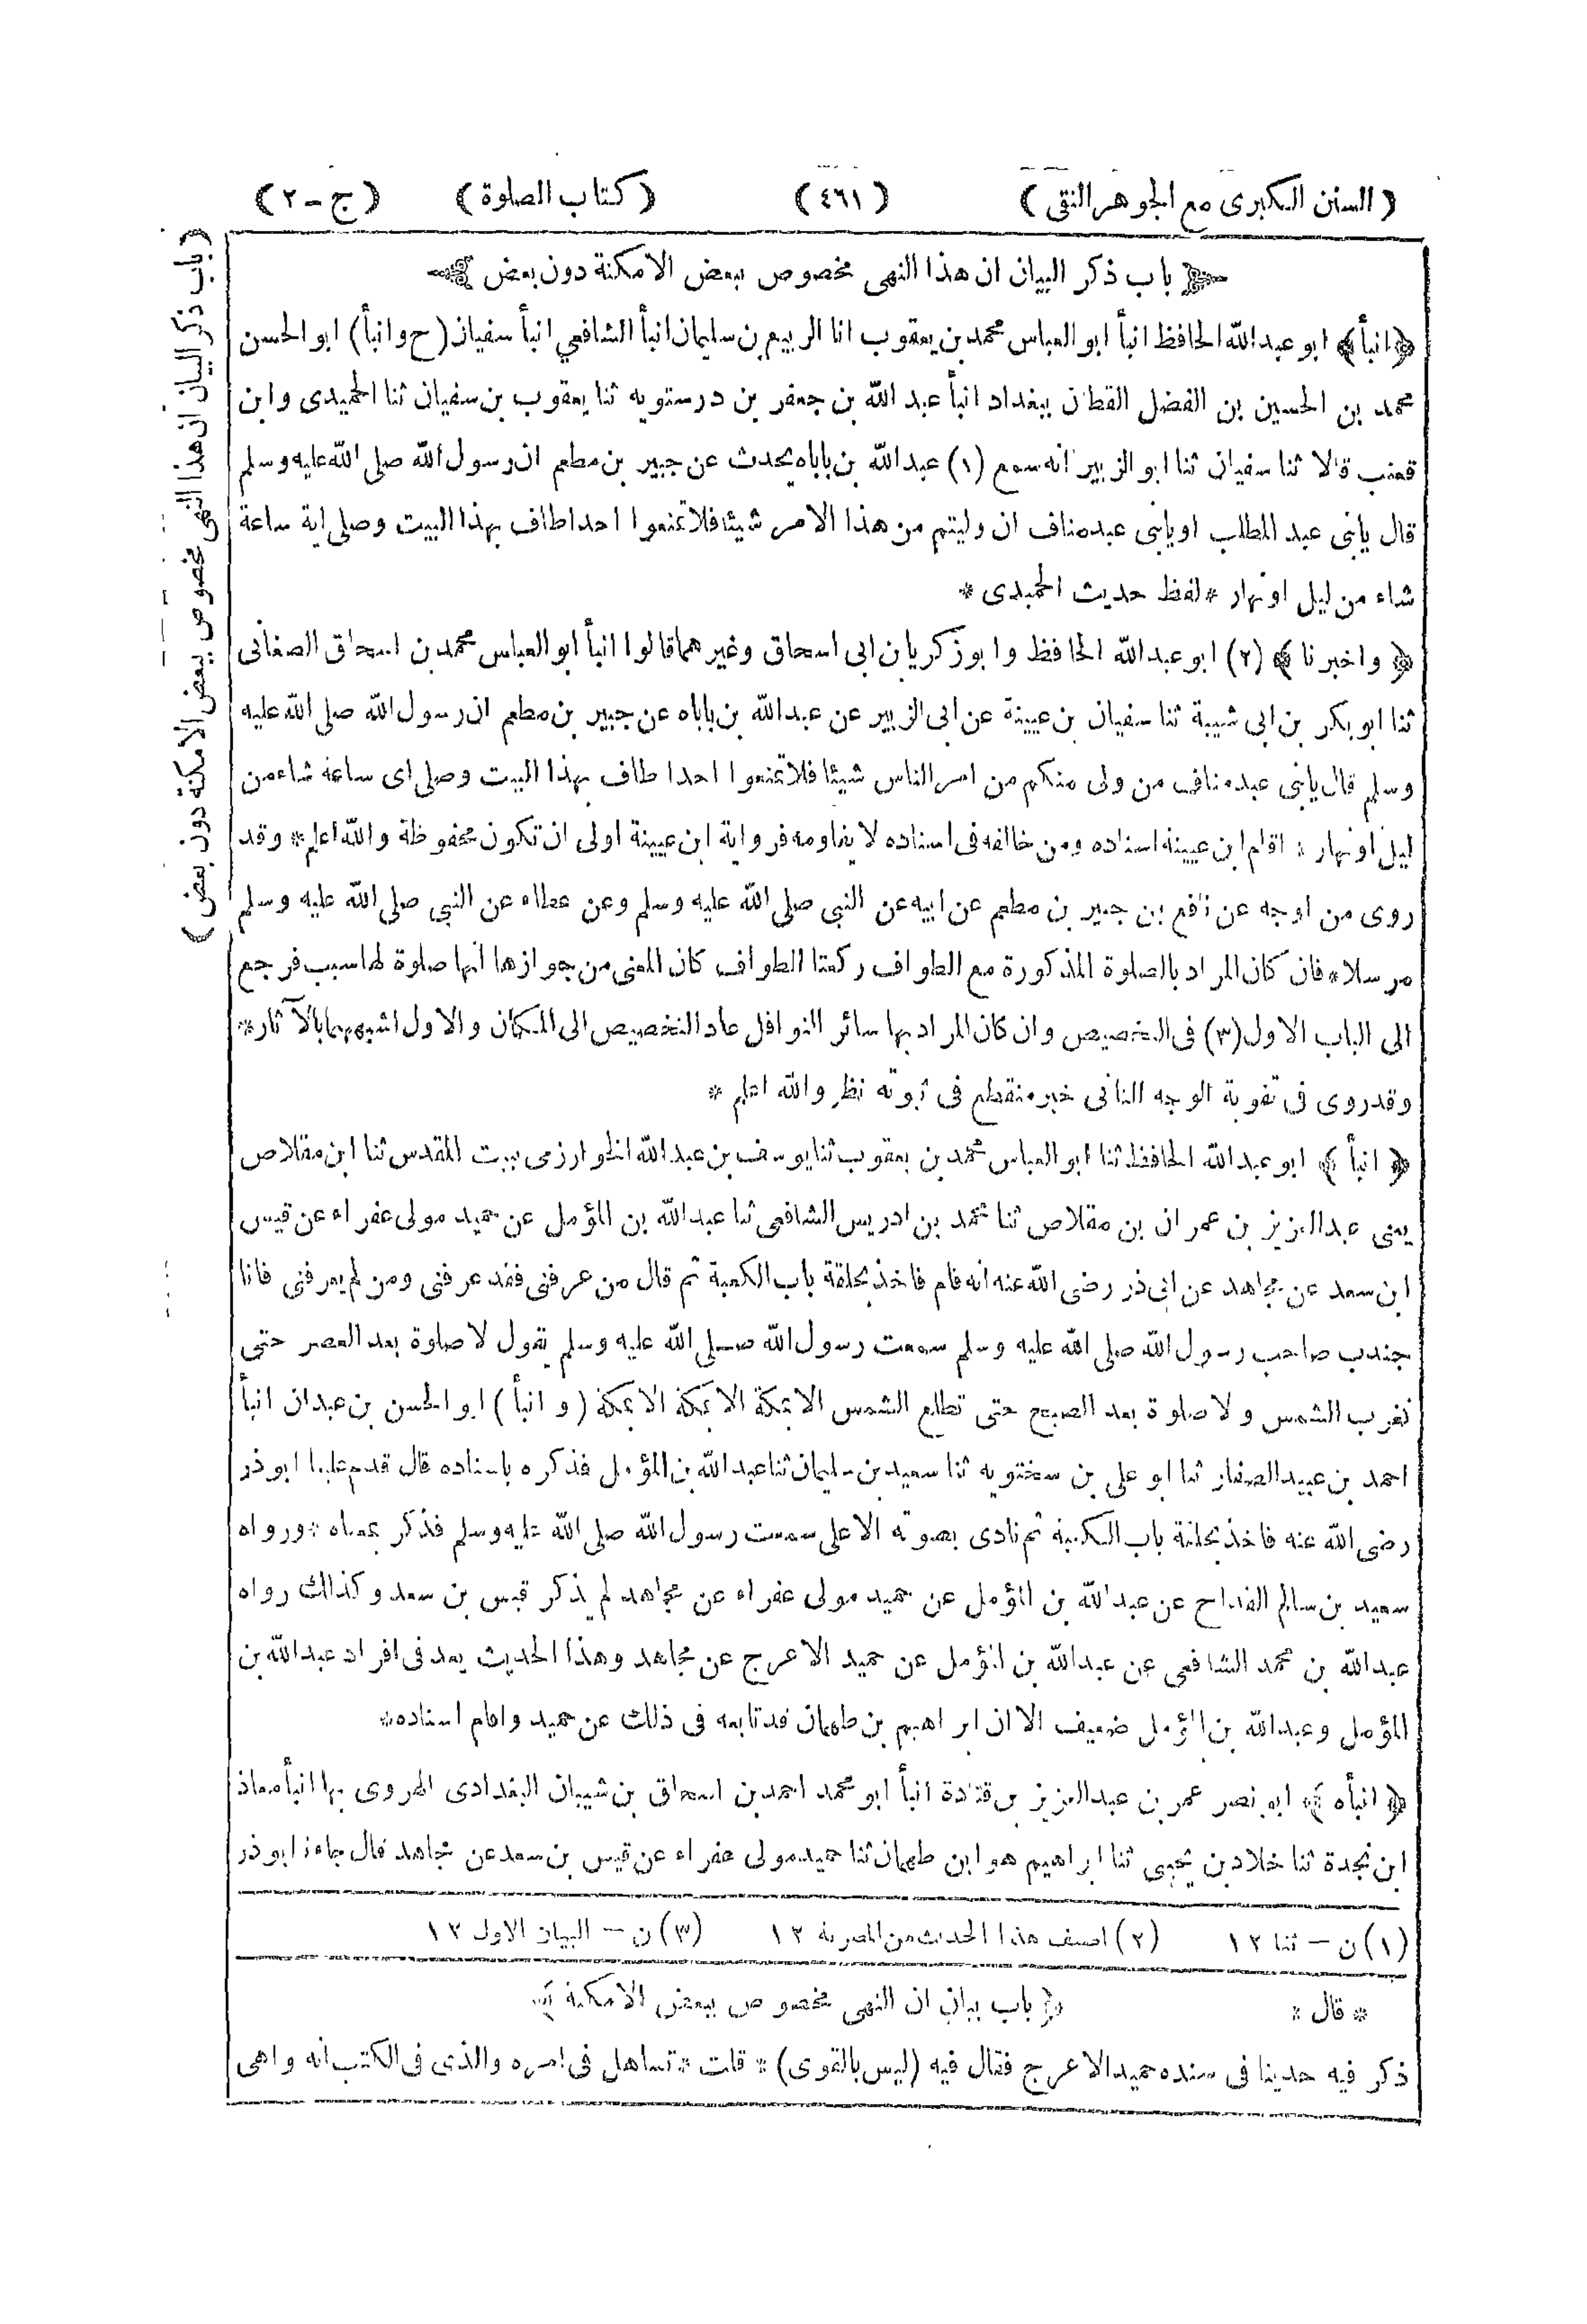 ( السنن الكبرى مع الجوهر النقى ) ( ٤٦١ ) ( كتاب الصلوة ) ( ج - ٢ )
باب ذكر البيان ان هذا النهى مخصوص ببعض الامكنة دون بعض
﴿ انبأ ﴾ ابو عبد الله الحافظ انبأ ابو العباس محمد بن يعقوب انا الربيع بن سليمان انبأ الشافعي انبأ سفيان ( ح و انبأ ) ابو الحسن
محمد بن الحسين بن الفضل القطان ببغداد انبأ عبد الله بن جعفر بن درستويه ثنا يعقوب بن سفيان ثنا الحميدى وابن
قعنب قالا ثنا سفيان ثنا ابو الزبير انه سمع (١) عبد الله بن باباه يحدث عن جبير بن مطعم ان رسول الله صلى الله عليه وسلم
قال يابنى عبد المطلب او يابنى عبد مناف ان وليتم من هذا الامر شيئا فلا تمنعوا احدا طاف بهذا البيت وصلى اية ساعة
شاء من ليل او نهار * لفظ حديث الحميدى *
﴿ واخبرنا ﴾ (٢) ابو عبد الله الحافظ وابو زكريا بن ابى اسحاق وغيرهما قالوا انبأ ابو العباس محمد بن اسحاق الصغانى
ثنا ابو بكر بن ابى شيبة ثنا سفيان بن عيينة عن ابى الزبير عن عبد الله بن باباه عن جبير بن مطعم ان رسول الله صلى الله عليه
وسلم قال يابنى عبد مناف من ولى منكم من امر الناس شيئا فلا تمنعوا احدا طاف بهذا البيت وصلى اى ساعة شاء من
ليل او نهار * اقام ابن عيينة اسناده ومن خالفه فى اسناده لا يقاومه فرواية ابن عيينة اولى ان تكون محفوظة والله اعلم * وقد
روى من اوجه عن نافع بن جبير بن مطعم عن ابيه عن النبي صلى الله عليه وسلم وعن عطاء عن النبي صلى الله عليه وسلم
مرسلا * فان كان المراد بالصلوة المذكورة مع الطواف ركعتا الطواف كان المعنى من جوازها انها صلوة لها سبب فرجع
الى الباب الاول (٣) فى التخصيص وان كان المراد بها سائر النوافل عاد التخصيص الى المكان والاول اشبههما بالآثار *
وقد روى فى تقوية الوجه الثانى خبر منقطع فى ثبوته نظر والله اعلم *
﴿ انبأ ﴾ ابو عبد الله الحافظ ثنا ابو العباس محمد بن يعقوب ثنا يوسف بن عبد الله الخوارزمى ببيت المقدس ثنا ابن مقلاص
يعنى عبد العزيز بن عمران بن مقلاص ثنا محمد بن ادريس الشافعى ثنا عبد الله بن المؤمل عن حميد مولى عفراء عن قيس
ابن سعد عن مجاهد عن ابى ذر رضى الله عنه انه قام فاخذ بحلقة باب الكعبة ثم قال من عرفنى فقد عرفنى ومن لم يعرفنى فانا
جندب صاحب رسول الله صلى الله عليه وسلم سمعت رسول الله صلى الله عليه وسلم يقول لا صلوة بعد العصر حتى
تغرب الشمس ولا صلوة بعد الصبح حتى تطلع الشمس الا بمكة الا بمكة الا بمكة ( و انبأ ) ابو الحسن بن عبدان انبأ
احمد بن عبيد الصفار ثنا ابو على بن سختويه ثنا سعيد بن سليمان ثنا عبد الله بن المؤمل فذكره باسناده قال قدم علينا ابو ذر
رضى الله عنه فاخذ بحلقة باب الكعبة ثم نادى بصوته الاعلى سمعت رسول الله صلى الله عليه وسلم فذكر بمعناه * ورواه
سعيد بن سالم القداح عن عبد الله بن المؤمل عن حميد مولى عفراء عن مجاهد لم يذكر قيس بن سعد وكذلك رواه
عبد الله بن محمد الشافعى عن عبد الله بن المؤمل عن حميد الاعرج عن مجاهد وهذا الحديث يعد فى افراد عبد الله بن
المؤمل وعبد الله بن المؤمل ضعيف الا ان ابراهيم بن طهمان قد تابعه فى ذلك عن حميد واقام اسناده *
﴿ انبأه ﴾ ابو نصر عمر بن عبد العزيز بن قتادة انبأ ابو محمد احمد بن اسحاق بن شيبان البغدادى الهروى بها انبأ معاذ
ابن نجدة ثنا خلاد بن يحيى ثنا ابراهيم هو ابن طهمان ثنا حميد مولى عفراء عن قيس بن سعد عن مجاهد قال جاءنا ابو ذر
(١) ن - ثنا ١٢ (٢) اضيف هذا الحديث من المصرية ١٢ (٣) ن - البيان الاول ١٢
* قال * ﴿ باب بيان ان النهى مخصوص ببعض الامكنة ﴾
ذكر فيه حديثا فى سنده حميد الاعرج فقال فيه ( ليس بالقوى ) * قلت * تساهل فى امره والذى فى الكتب انه واهى
( باب ذكر البيان ان هذا النهى مخصوص ببعض الامكنة دون بعض )